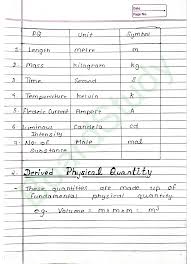 Date
Page No.
PQ Unit Symbol
1. Length metre m
2. Mass kilogram kg
3. Time Second S
4. Temperature kelvin k
5. Electric Current Ampert A
6. Luminous Intensity Candela cd
7. No. of Substance Mole mol
2. Derived Physical Quantity
- These quantities are made up of
Fundamental physical quantity
e.g. Volume = m×m×m = m³